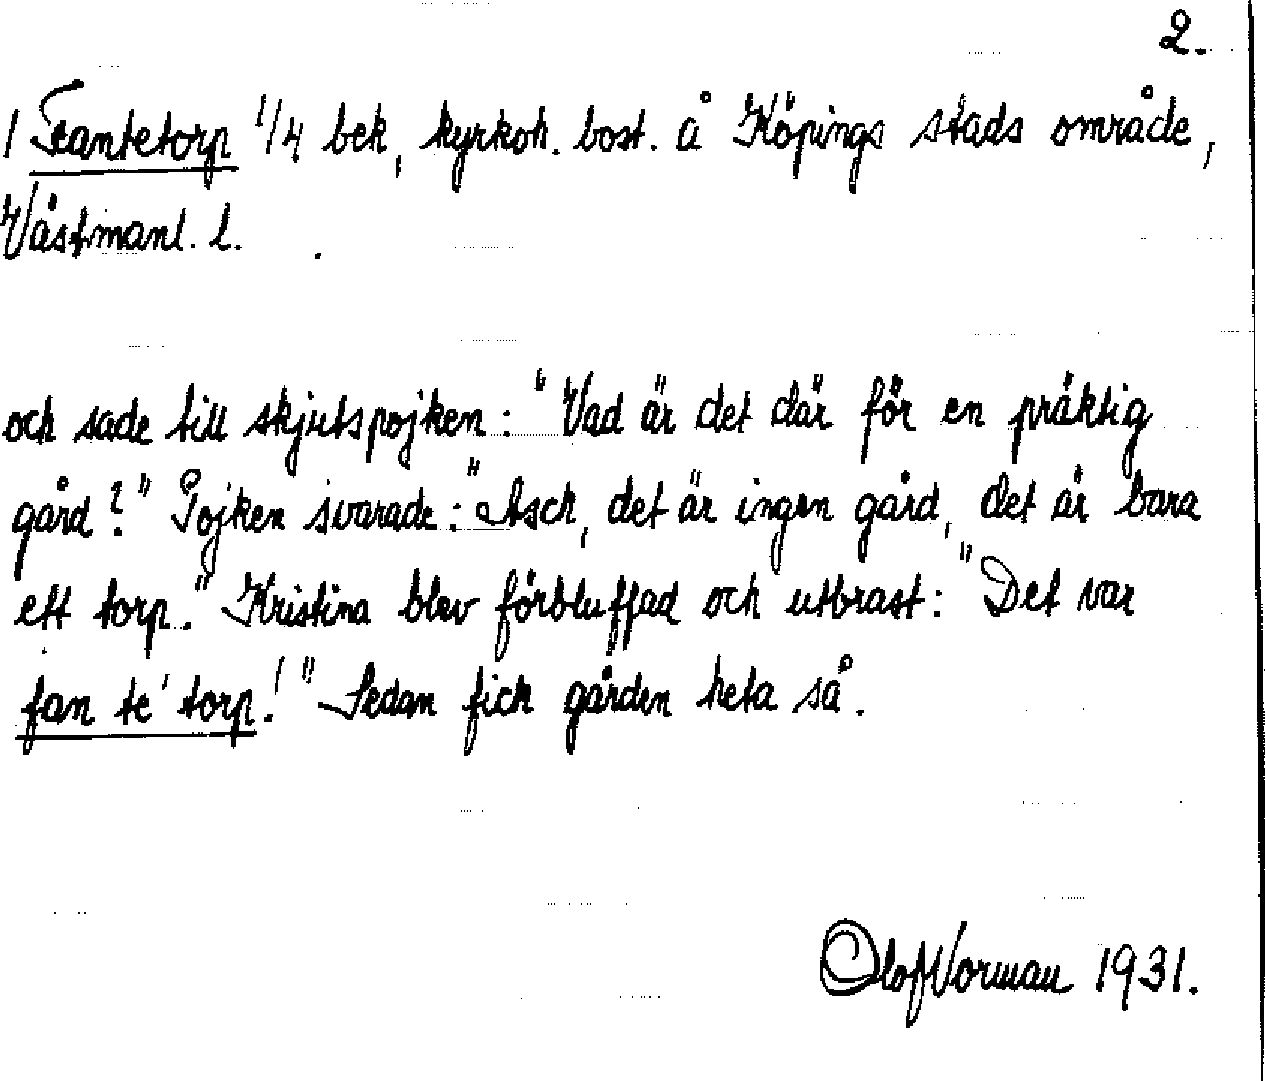 2.
/ Fantetorp 1/4 bek, kyrkoh. bost. å Köpings stads område,
Västmanl. l.
och sade till skjutspojken: "Vad är det där för en präktig
gård?" Pojken svarade: "Asch, det är ingen gård, det är bara
ett torp." Kristina blev förbluffad och utbrast: "Det var
fan te' torp!" Sedan fick gården heta så.
Olof Norman 1931.